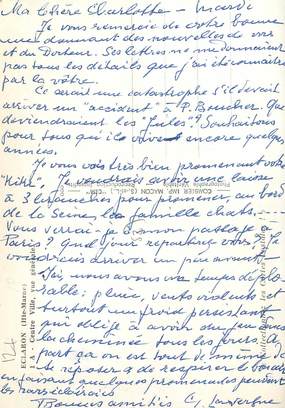 Ma Chère Charlotte – mardi
Je vous remercie de votre bonne
me donnant des nouvelles de vous
et du Docteur. Ses lettres ne me donnaient
pas tous les détails que j'ai pu connaître
par la vôtre.
Ce serait une catastrophe s'il devait
arriver un "accident" à P. Boucher. Que
deviendraient les "Jules"? Souhaitons
pour tous qu'ils vivent encore quelques
années.
Je vous vois très bien promenant votre
"Kiki". Je voudrais avoir une laisse
à 3 branches pour promener, au bord
de la Seine, la famille chats.
Vous verrai-je à mon passage à
Paris? Quel jour repartirez-vous? Je
voudrais arriver un peu avant.
Ici, nous avons un temps
pluie, vents violents et
surtout un froid persistant
qui oblige à avoir du feu dans
la cheminée tous les jours. A
part ça on est tout de même
se reposer & de respirer
en faisant quelques promenades pendant
les rares éclaircies
amitiés
ECLARON (Hte-Marne)
Centre Ville, vue générale
COMBIER IMP. MACON (S.-&-L.) "CIM"